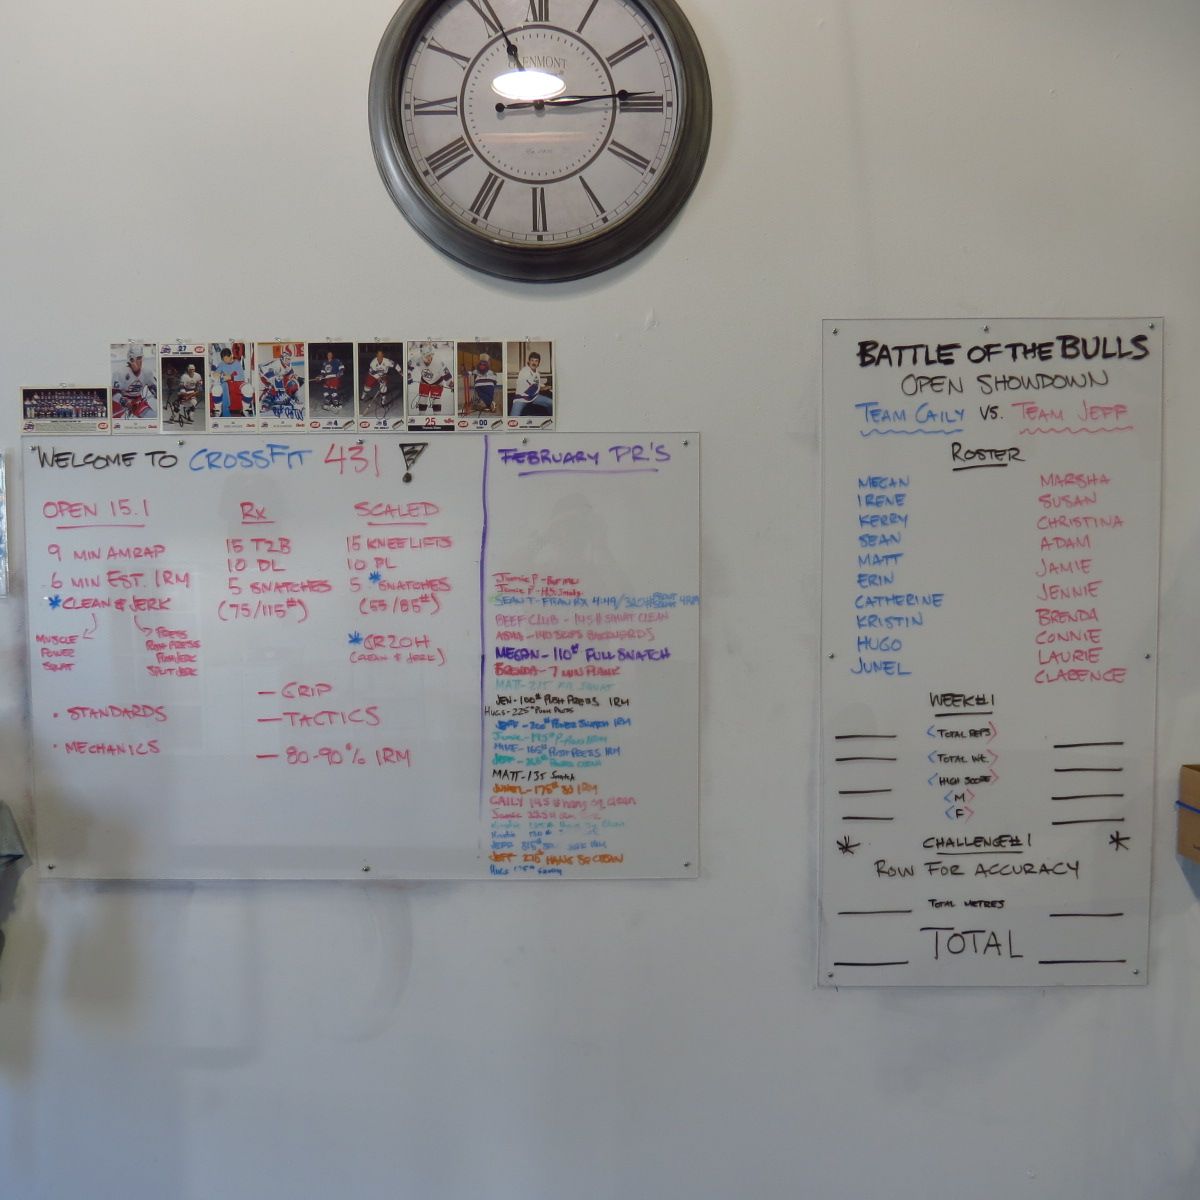 GLENMONT
27
4
6
25
00
WELCOME TO CROSSFIT 431
OPEN 15.1
9 MIN AMRAP
6 MIN EST. 1RM
*CLEAN & JERK
MUSCLE
POWER
SQUAT
PRESS
PUSH PRESS
PUSH JERK
SPLIT JERK
• STANDARDS
• MECHANICS
Rx
15 T2B
10 DL
5 SNATCHES
(75/115#)
SCALED
15 KNEE LIFTS
10 DL
5 *SNATCHES
(55/85#)
*GR2OH
(CLEAN & JERK)
— GRIP
— TACTICS
— 80-90% 1RM
FEBRUARY PR'S
Jamie P -
Jamie P -
SEAN T- FRAN RX 4:49/
BEEF CLUB - 145# SQUAT CLEAN
- 140 SKIPS BACKWARDS
MEGAN- 110# FULL SNATCH
BRENDA- 7 MIN PLANK
MATT- 215# SQUAT
JEN- 100# PUSH PRESS 1RM
HUGS- 225# PUSH PRESS
JEFF - 200# POWER SNATCH 1RM
Jamie-
MIKE- 165# PUSH PRESS 1RM
JEFF- POWER CLEAN
MATT- 135 Snatch
JUNEL- 175# 1RM
CAILY 145# hang sq clean
Jamie 225# 1RM
JEFF 315#
JEFF HANG SQ CLEAN
HUGS
BATTLE OF THE BULLS
OPEN SHOWDOWN
TEAM CAILY VS. TEAM JEFF
ROSTER
MEGAN
IRENE
KERRY
SEAN
MATT
ERIN
CATHERINE
KRISTIN
HUGO
JUNEL
MARSHA
SUSAN
CHRISTINA
ADAM
JAMIE
JENNIE
BRENDA
CONNIE
LAURIE
CLARENCE
WEEK#1
<TOTAL REPS>
<TOTAL WT.>
<HIGH SCORE>
<M>
<F>
* CHALLENGE#1 *
ROW FOR ACCURACY
TOTAL METRES
TOTAL